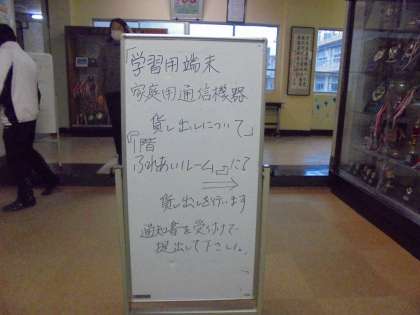 「学習用端末
家庭用通信機器
貸し出しについて」
1階
ふれあいルームにて
→
貸し出しを行います
通知書を受付で
提出して下さい。